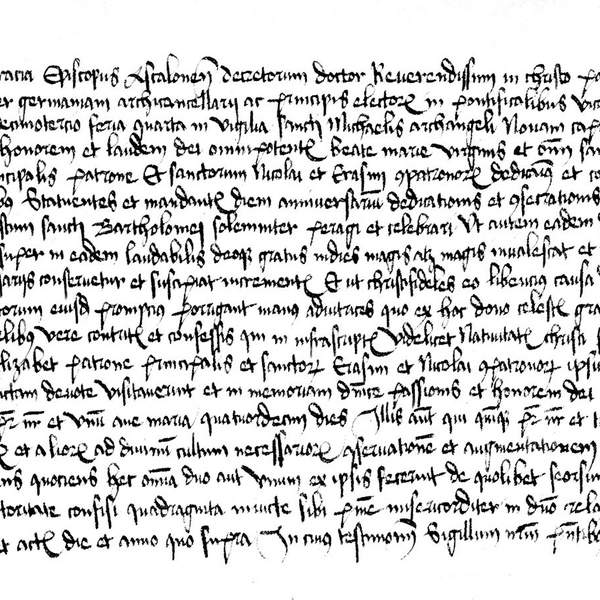 racia Episcopus Ascalonen̄ decretorum doctor Reverendissimi in christo p
er germaniam archicancellarii ac principis electoꝝ in pontificalibus vic
ecimotercio feria quarta in vigilia sancti Michaelis archangeli Novam cap
honorem et laudem dei omnipotentꝭ beate marie virginis et om̄i san
ncipalis patrone Et sanctorum Nicolai et Erasmi ꝯpatronoꝝ dedicavimꝰ et co
bꝰ Statuentes et mandantꝭ diem anniversariū dedicationis et ꝯsecrationis
stum sancti Bartholomei solemniter peragi et celebrari Ut autem eadem
super in eadem laudabilis deoqꝫ gratus indies magis atqꝫ magis invalescat et
ariis conservetur et suscipiat incrementꝭ Et ut christifideles eo libencius causa
torum eiusdē promptius porrigant manꝰ adiutrices quo ex hoc dono celestꝭ gra
elibꝰ vere contritꝭ et confessis qui in infrascriptꝭ videlicet Nativitatꝭ christi
lizabet patrone principalis et sanctoꝝ Erasmi et Nicolai ꝯpatronoꝝ ipsu
ctam devote visitaverint et in memoriam dn̄ice passionis et honorem dei
pr̄ nr̄ et unū ave maria quatuordecim dies Illis aūt qui quīqꝫ pr̄ nr̄ et t
et alioꝝ ad divinū cultum necessarioꝝ ꝯservationē et augmentationem
ns quociens hec om̄ia duo aut unum ex ipsis fecerint de quolibet seorsim
toritate confisi quadraginta iniucte sibi pn̄ie misericorditer in dn̄o rela
et actꝭ die et anno quo supra In cuius testimoniū Sigillum nr̄m pn̄tibꝰ